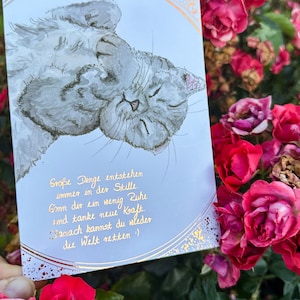 Große Dinge entstehen
immer in der Stille
Gönn dir ein wenig Ruhe
und tanke neue Kraft
Danach kannst du wieder
die Welt retten :)